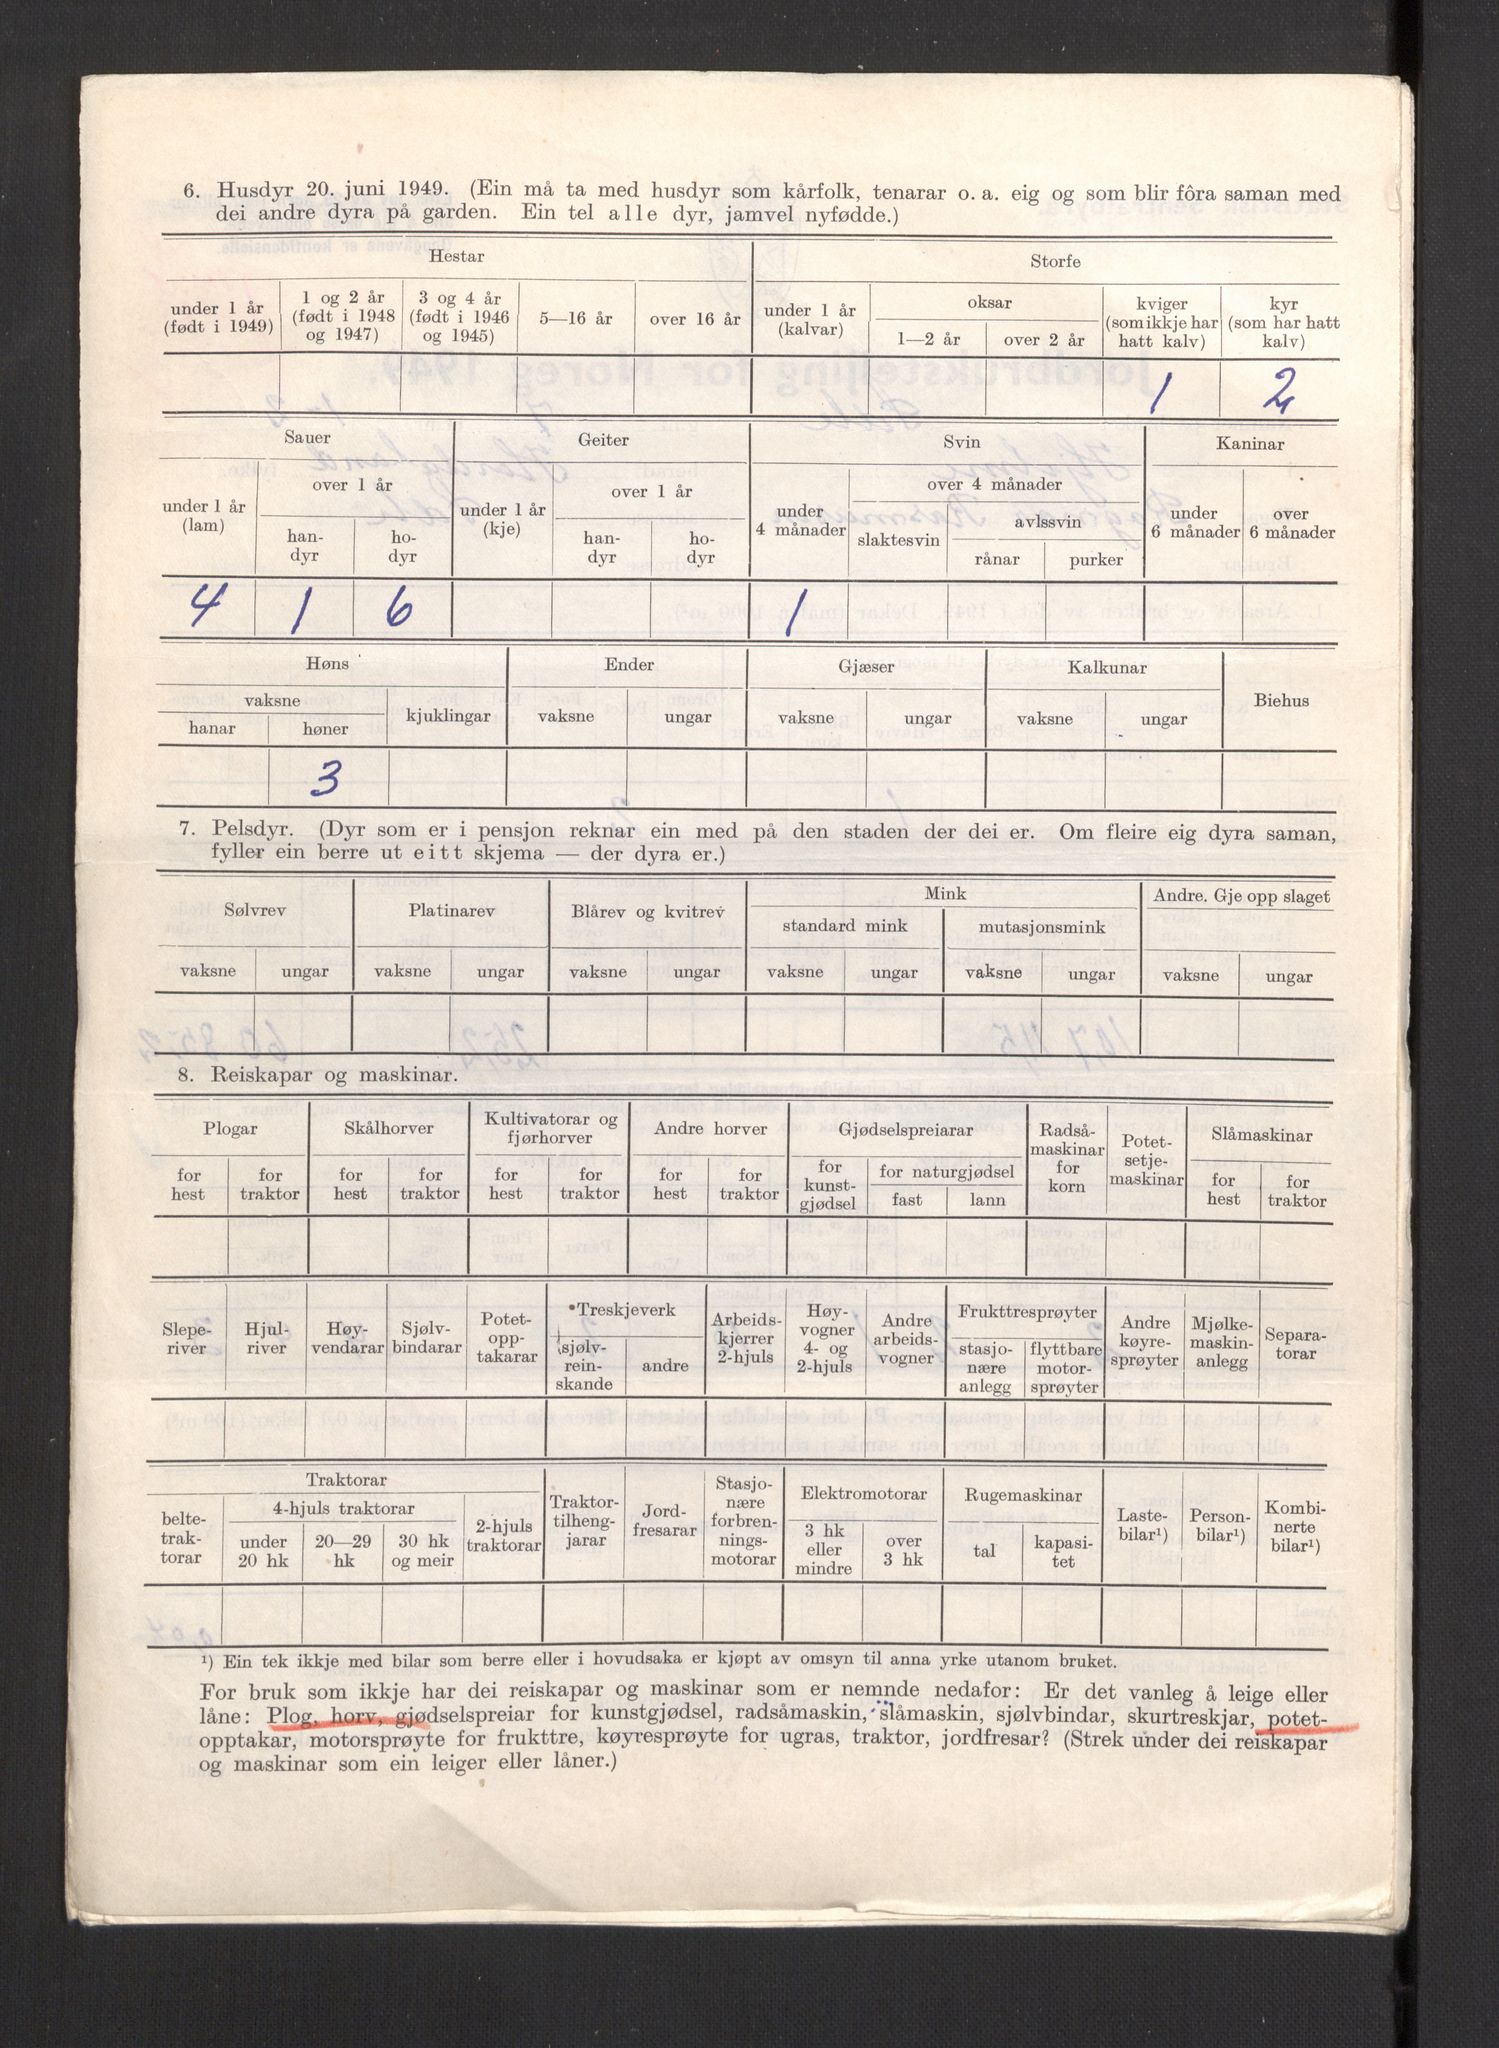 6. Husdyr 20. juni 1949. (Ein må ta med husdyr som kårfolk, tenarar o. a. eig og som blir fôra saman med
dei andre dyra på garden. Ein tel alle dyr, jamvel nyfødde.)
Hestar Storfe
under 1 år (født i 1949) 1 og 2 år (født i 1948 og 1947) 3 og 4 år (født i 1946 og 1945) 5—16 år over 16 år under 1 år (kalvar) oksar kviger (som ikkje har hatt kalv) kyr (som har hatt kalv)
1—2 år over 2 år
1 2
Sauer Geiter Svin Kaninar
under 1 år (lam) over 1 år under 1 år (kje) over 1 år under 4 månader over 4 månader under 6 månader over 6 månader
slaktesvin avlssvin
han-dyr ho-dyr han-dyr ho-dyr rånar purker
4 1 6 1
Høns Ender Gjæser Kalkunar Biehus
vaksne kjuklingar vaksne ungar vaksne ungar vaksne ungar
hanar høner
3
7. Pelsdyr. (Dyr som er i pensjon reknar ein med på den staden der dei er. Om fleire eig dyra saman,
fyller ein berre ut eitt skjema — der dyra er.)
Sølvrev Platinarev Blårev og kvitrev Mink Andre. Gje opp slaget
standard mink mutasjonsmink
vaksne ungar vaksne ungar vaksne ungar vaksne ungar vaksne ungar vaksne ungar
8. Reiskapar og maskinar.
Plogar Skålhorver Kultivatorar og fjørhorver Andre horver Gjødselspreiarar Radså-maskinar for korn Potet-setje-maskinar Slåmaskinar
for hest for traktor for hest for traktor for hest for traktor for hest for traktor for kunst-gjødsel for naturgjødsel for hest for traktor
fast lann
Slepe-river Hjul-river Høy-vendarar Sjølv-bindarar Potet-opp-takarar Treskjeverk Arbeids-kjerrer 2-hjuls Høy-vogner 4- og 2-hjuls Andre arbeids-vogner Frukttresprøyter Andre køyre-sprøyter Mjølke-maskin-anlegg Separa-torar
sjølv-rein-skande andre stasjo-nære anlegg flyttbare motor-sprøyter
Traktorar Traktor-tilheng-jarar Jord-fresarar Stasjo-nære forbren-nings-motorar Elektromotorar Rugemaskinar Laste-bilar¹) Person-bilar¹) Kombi-nerte bilar¹)
belte-trak-torar 4-hjuls traktorar 2-hjuls traktorar
under 20 hk 20—29 hk 30 hk og meir 3 hk eller mindre over 3 hk tal kapasi-tet
¹) Ein tek ikkje med bilar som berre eller i hovudsaka er kjøpt av omsyn til anna yrke utanom bruket.
For bruk som ikkje har dei reiskapar og maskinar som er nemnde nedafor: Er det vanleg å leige eller
låne: Plog, horv, gjødselspreiar for kunstgjødsel, radsåmaskin, slåmaskin, sjølvbindar, skurtreskjar, potet-
opptakar, motorsprøyte for frukttre, køyresprøyte for ugras, traktor, jordfresar? (Strek under dei reiskapar
og maskinar som ein leiger eller låner.)